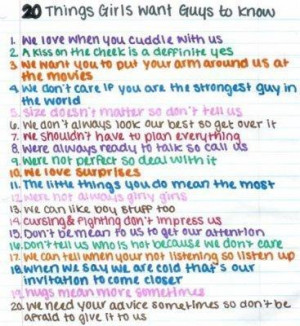 20 Things Girls Want Guys to know
1. We love when you cuddle with us
2. A kiss on the cheek is a deffinite yes
3. We want you to put your arm around us at
the movies
4. We don't care if you are the strongest guy in
the world
5. Size doesn't matter so don't tell us
6. We don't always look our best so get over it
7. We shouldn't have to plan everything
8. We're always ready to talk so call us
9. We're not perfect so deal with it
10. We love surprises
11. The little things you do mean the most
12. We're not always girly girls
13. We can like boy stuff too
14. Cursing & fighting don't impress us
15. Don't be mean to us to get our attention
16. Don't tell us who is hot because we don't care
17. We can tell when your not listening so listen up
18. When we say we are cold that's our
invitation to come closer
19. Hugs mean more sometimes
20. We need your advice sometimes so don't be
afraid to give it to us